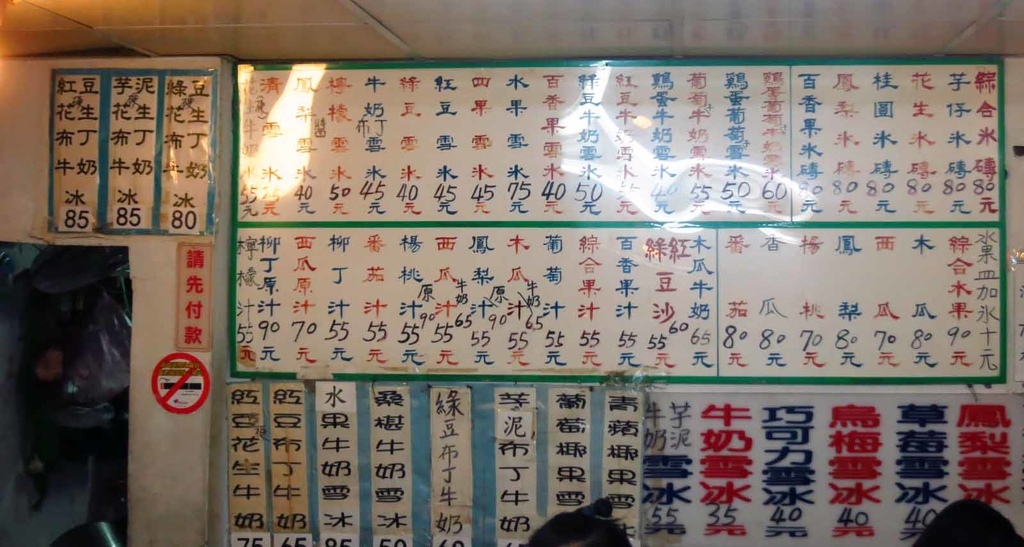 綜合冰磚80元
芋仔冰磚80元
花生冰磚80元
桂圓冰磚80元
鳳梨冰磚80元
百香果冰磚80元
鷄蛋葡萄牛奶雪冰60元
鷄蛋葡萄雪冰50元
葡萄牛奶雪冰55元
鷄蛋牛奶雪冰40元
綠豆牛奶雪冰50元
百香果雪冰40元
水果雪冰75元
四果雪冰45元
紅豆雪冰45元
綠豆雪冰40元
牛奶布丁雪冰45元
檸檬雪冰50元
鳳梨雪冰40元
水果皿加冰十元
綜合水果90元
木瓜80元
西瓜70元
鳳梨80元
楊桃70元
香瓜80元
番茄80元
木瓜牛奶65元
紅豆沙60
綠豆沙55元
百香果汁55元
綜合果汁55元
葡萄汁55元
木瓜汁55元
牛奶65
鳳梨汁55元
原90
西瓜汁55元
牛奶65
楊桃汁55元
原90
番茄汁55元
柳丁汁55元
西瓜原汁70元
柳丁原汁90元
檸檬汁55元
綠豆花生布丁牛奶冰80
芋泥花生布丁牛奶冰85
紅豆花生布丁牛奶冰85
請先付款
鳳梨雪冰
草莓雪冰40元
烏梅雪冰40元
巧可力雪冰40元
牛奶雪冰35元
芋泥牛奶雪冰55元
青蘋椰果雪
葡萄椰果雪
芋泥布丁牛奶
綠豆布丁牛奶
桑椹牛奶雪冰50
水果牛奶雪冰85
紅豆布丁牛奶65
紅豆花生牛奶75